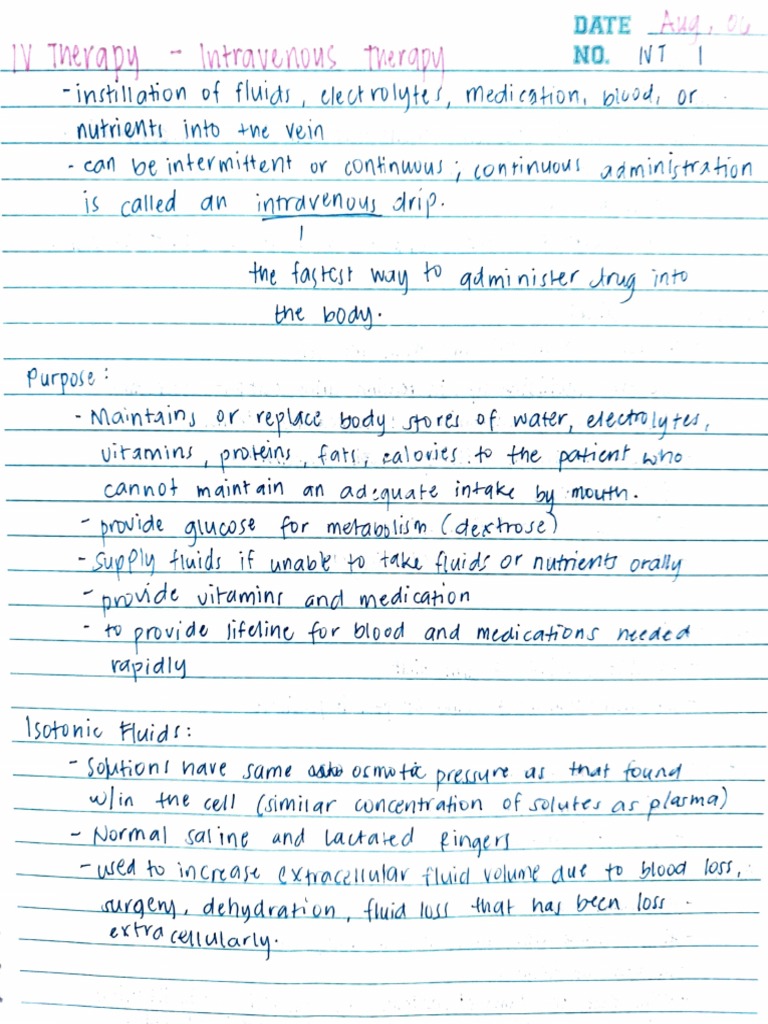 DATE Aug, 06
IV Therapy - Intravenous Therapy
NO. IVT 1
- instillation of fluids, electrolytes, medication, blood, or
nutrients into the vein
- can be intermittent or continuous; continuous administration
is called an intravenous drip.
the fastest way to administer drug into
the body.
Purpose:
- Maintains or replace body stores of water, electrolytes,
vitamins, proteins, fats, calories to the patient who
cannot maintain an adequate intake by mouth.
- provide glucose for metabolism (dextrose)
- Supply fluids if unable to take fluids or nutrients orally
- provide vitamins and medication
- to provide lifeline for blood and medications needed
rapidly
Isotonic Fluids:
- Solutions have same osmotic pressure as that found
w/in the cell (similar concentration of solutes as plasma)
- Normal saline and lactated Ringers
- used to increase extracellular fluid volume due to blood loss,
surgery, dehydration, fluid loss that has been loss
extracellularly.